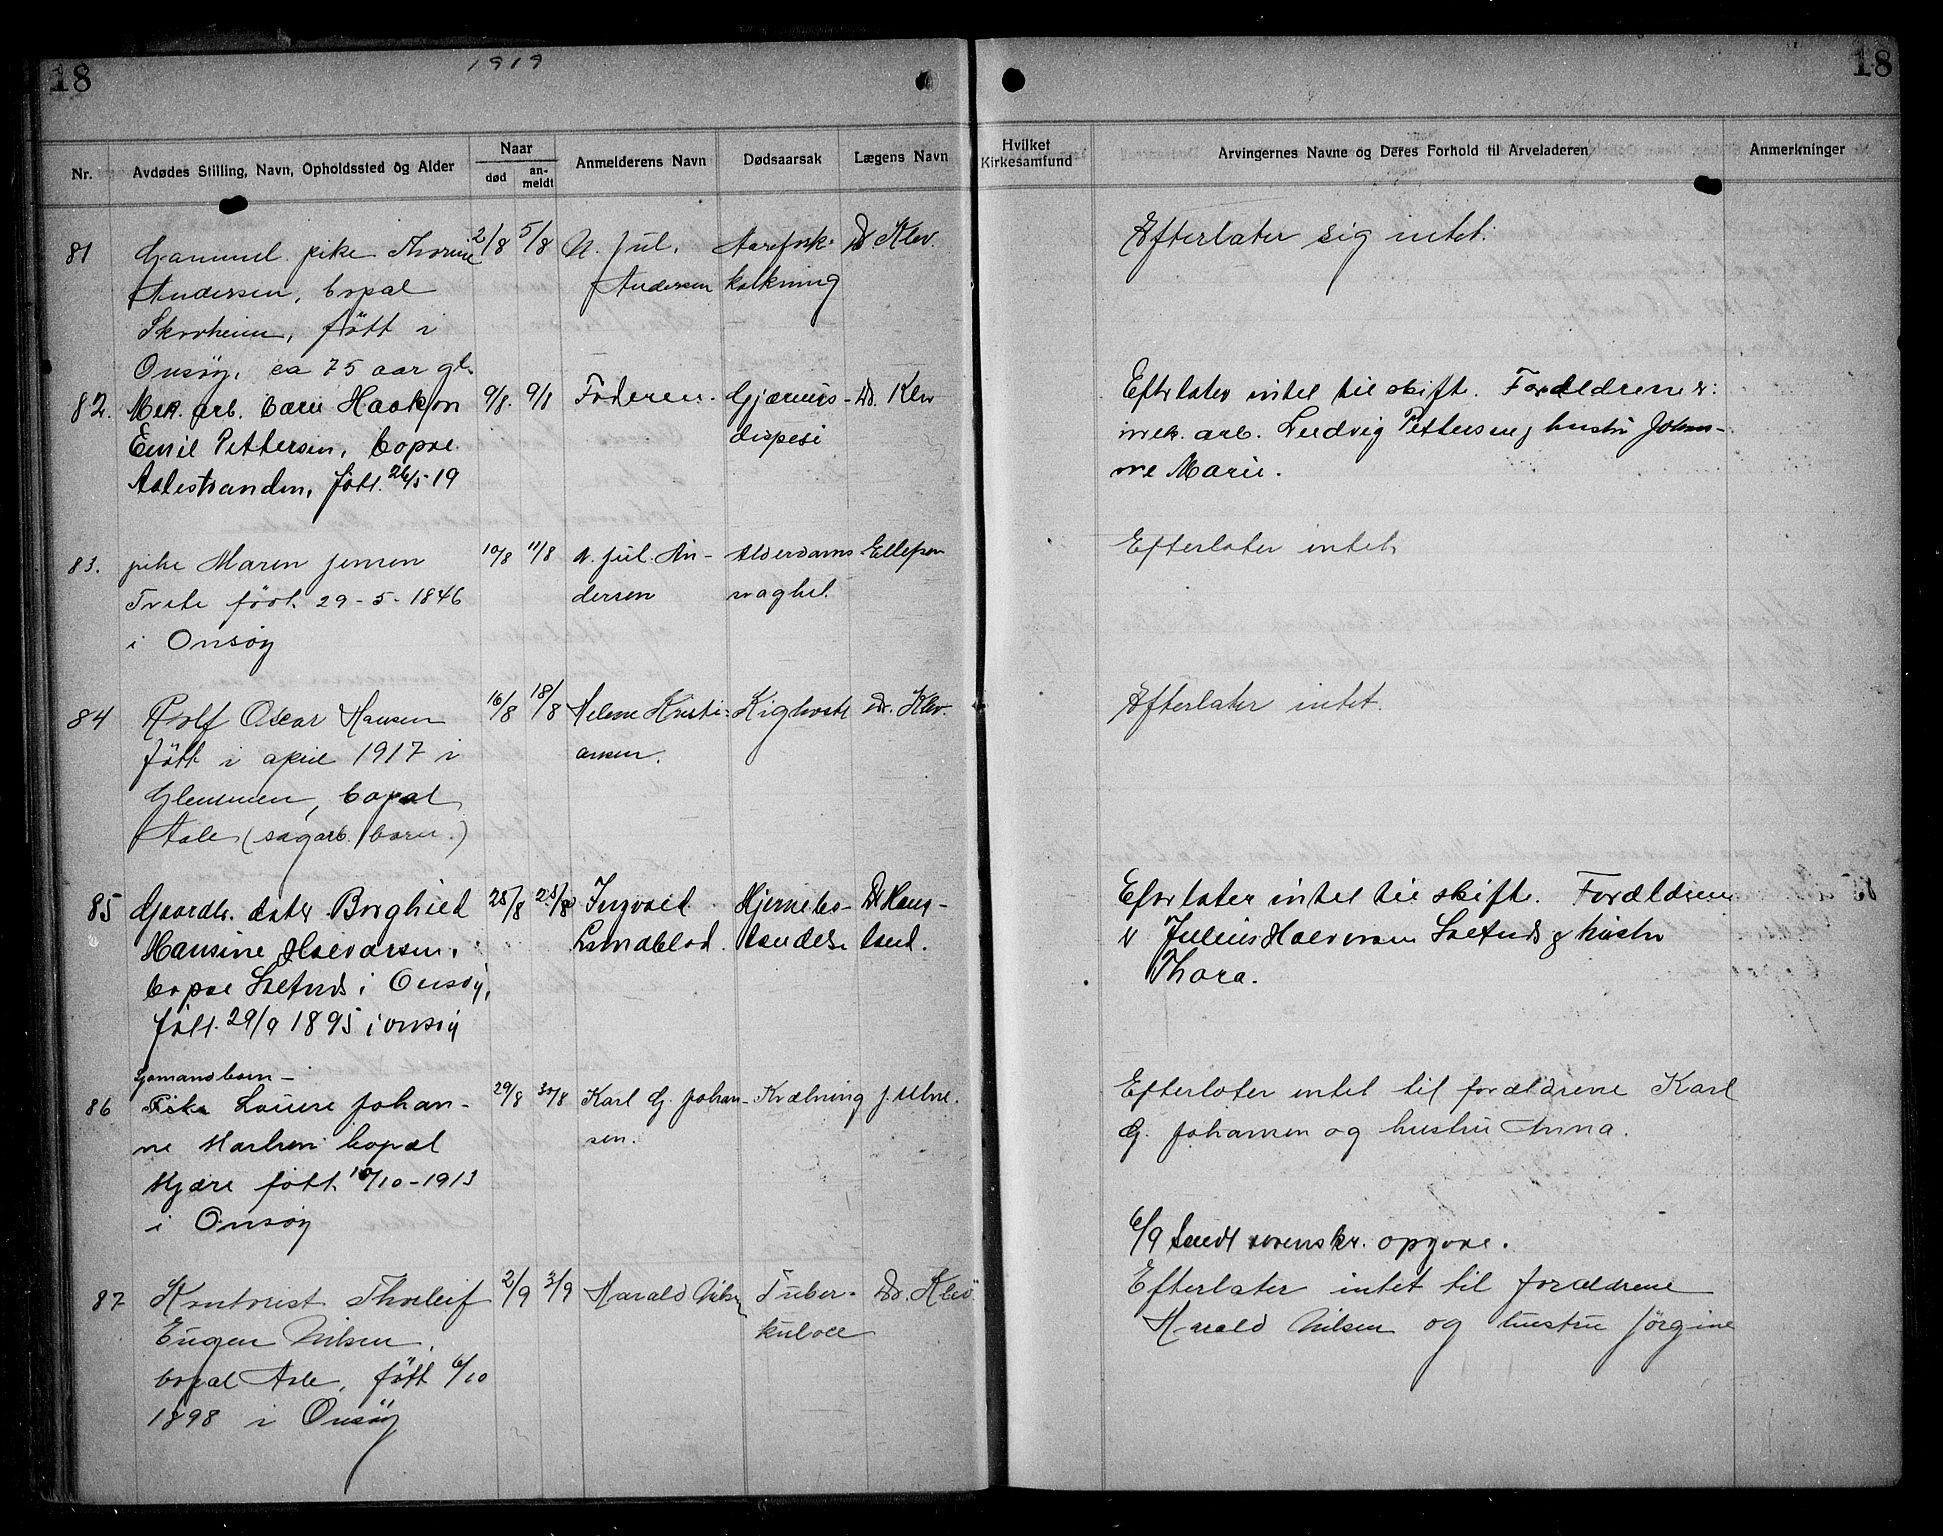 18
1919
18
Nr.
Avdødes Stilling, Navn, Opholdssted og Alder
Naar
død
an-
meldt
Anmelderens Navn
Dødsaarsak
Lægens Navn
Hvilket
Kirkesamfund
Arvingernes Navne og Deres Forhold til Arveladeren
Anmerkninger
81
Gammel pike Thorine
Andersen, bopal
Skovheim, født i
Onsøy, ca 75 aar gl.
2/8
5/8
N. Jul.
Andersen
Aarefork-
kalkning
Dr Klev.
Efterlater sig intet.
82.
Mek. arb. barn Haakon
Emil Pettersen, bopæl
Aalestranden, født 26/5-19
9/8.
9/8
Faderen.
Gjærings-
dispesi
Dr. Klev
Efterlater intet til skift. Forældrene er:
mek. arb. Ludvig Pettersen og hustru Johan-
ne Marie.
83.
pike Maren Jensen
Tvete født 29-5-1846
i Onsøy
10/8
11/8
N. Jul. An-
dersen
Alderdoms
svaghet
Ellefsen
Efterlater intet
84
Rolf Oscar Hansen
født i april 1917 i
Glemmen, bopæl
Aale (sagarb. barn.)
16/8
18/8
Helene Kristi-
ansen.
Kighoste
Dr. Klev.
Efterlater intet.
85
Gaardbr. dater Borghild
Hansine Halvorsen,
bopæl Saltnes i Onsøy,
født 29/9 1895 i Onsøy
25/8
25/8
Ingvald
Lundblad.
Hjernebe-
tændelse
Dr Haug-
land.
Efterlater intet til skifte. Forældrene
er Julius Halvorsen Saltnes og hustru
Thora.
Sjømandbarn -
86
Pike Lovise Johan-
ne Karlsen bopæl
Kjære født 10/10-1913
i Onsøy
29/8
30/8
Karl G. Johan-
sen.
Kvælning
Efterlater intet til forældrene Karl
G. Johansen og hustru Anna.
6/9 Sendt sorenskr. opgave.
87
Kontorist Thorleif
Eugen Nilsen,
bopæl Ale, født 6/10
1898 i Onsøy
2/9
3/9
Harald Nilsen
Tuber-
kulose
Dr. Klev.
Efterlater intet til forældrene
Harald Nilsen og hustru Jørgine